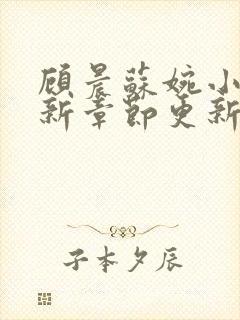 顾晨蘇婉小
新章節更新
子本夕辰